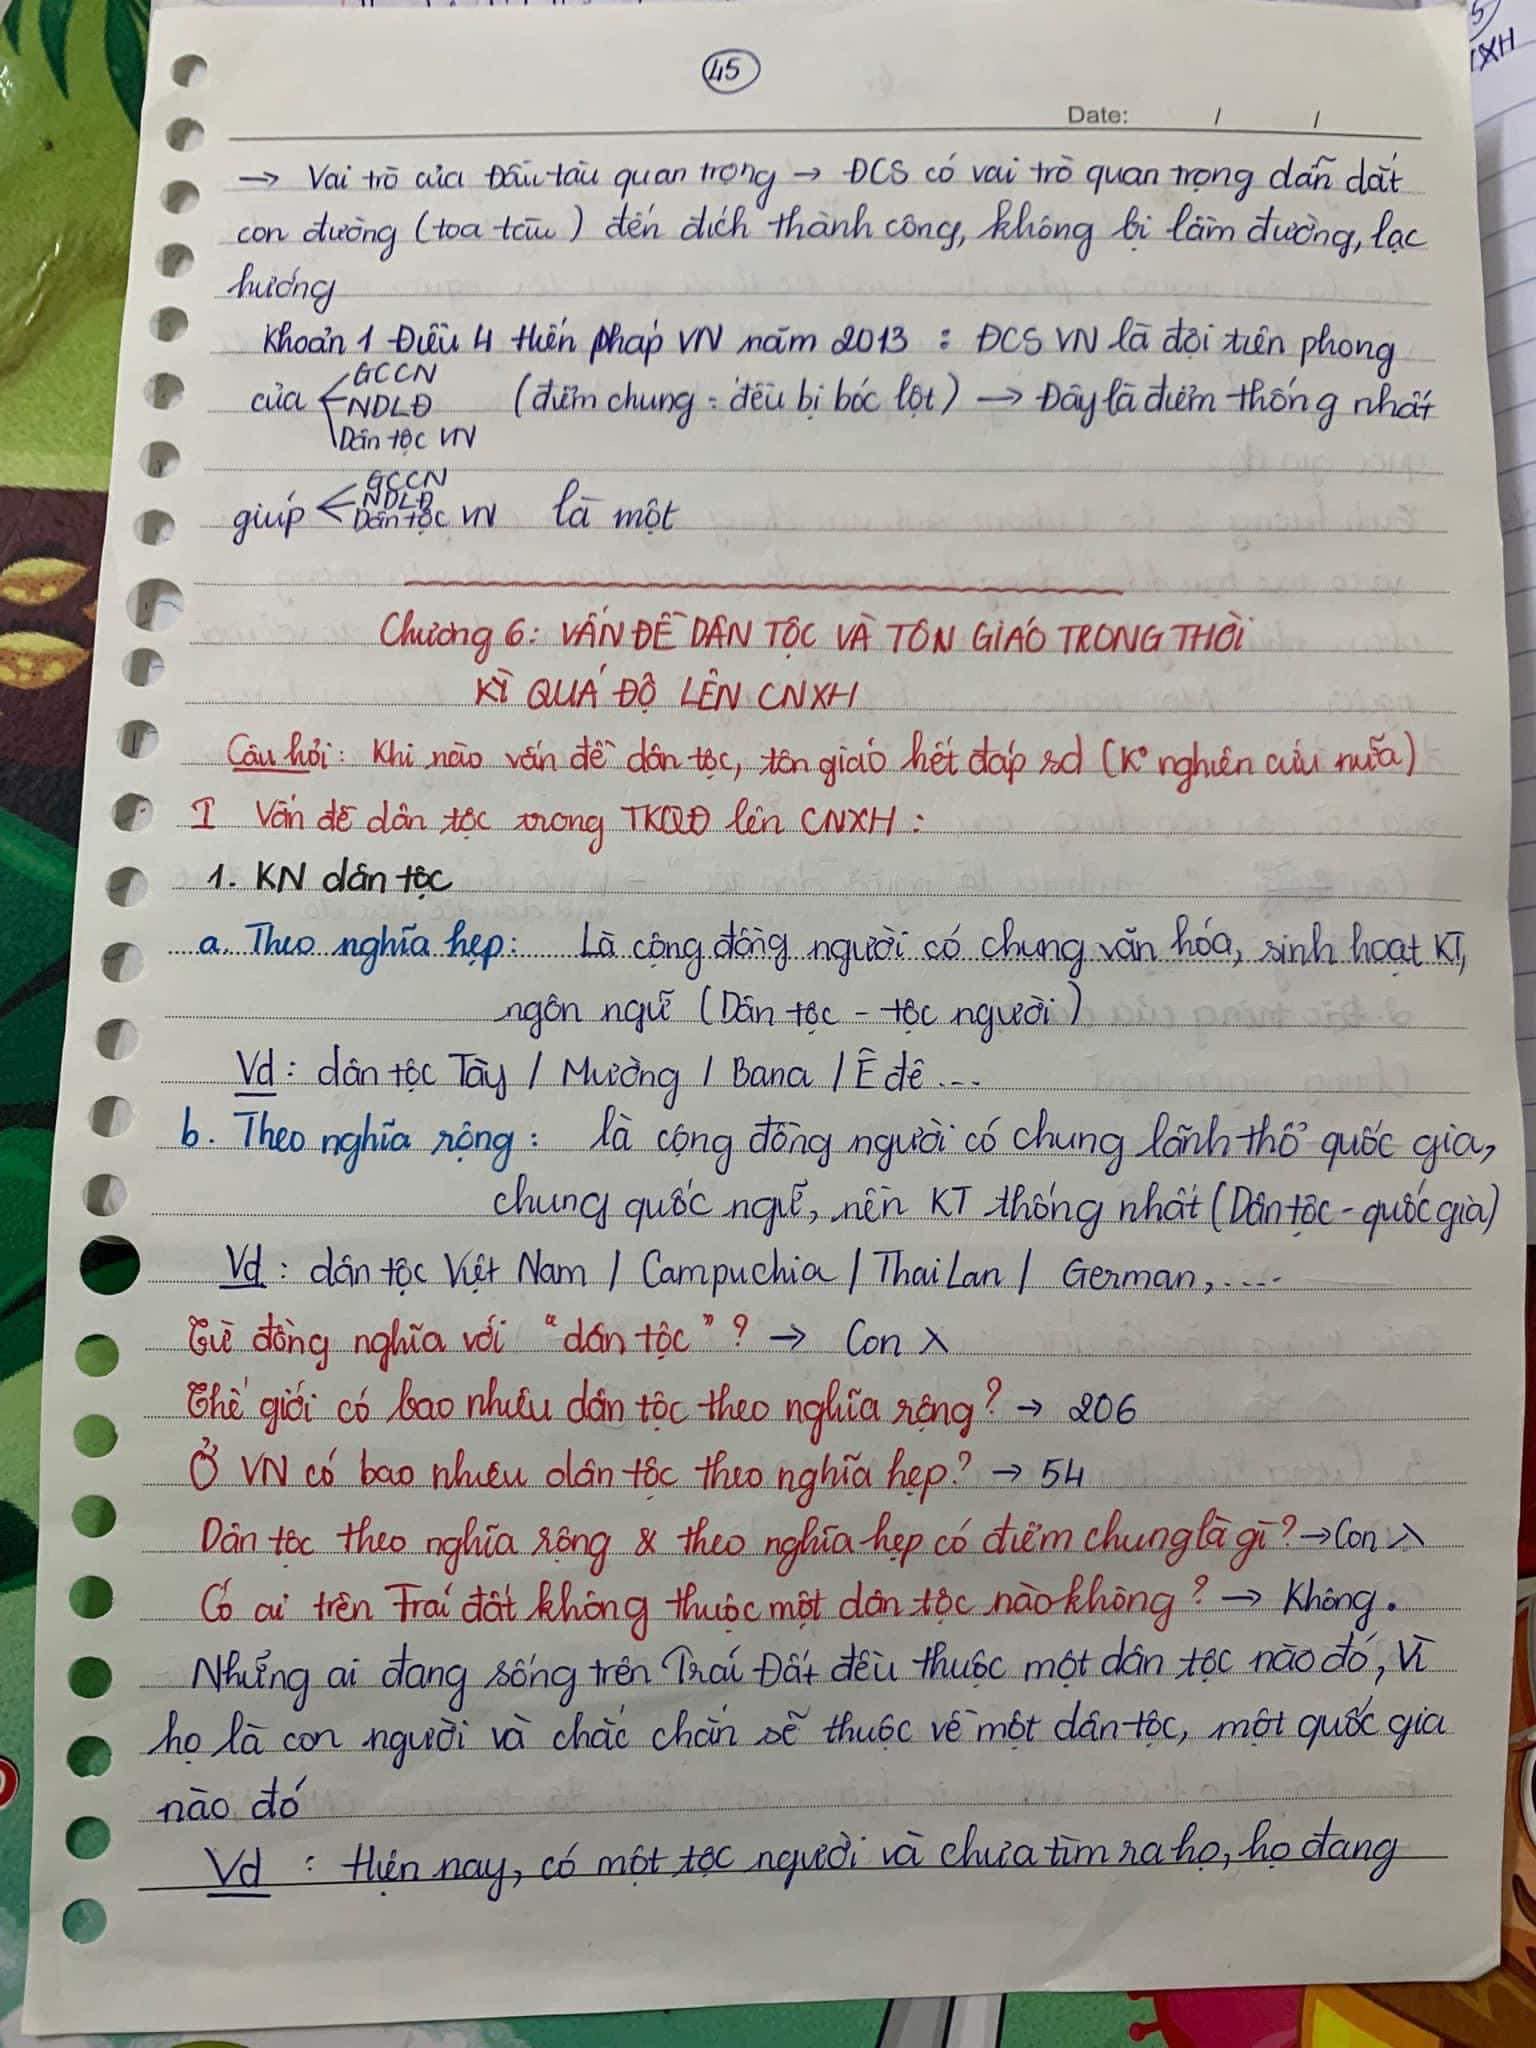 45
Date: / /
→ Vai trò của Đầu tàu quan trọng → ĐCS có vai trò quan trọng dẫn dắt
con đường (toa tàu) đến đích thành công, không bị lầm đường, lạc
hướng
Khoản 1 Điều 4 Hiến pháp VN năm 2013 : ĐCS VN là đội tiên phong
GCCN
của NDLĐ (điểm chung : đều bị bóc lột) → Đây là điểm thống nhất
Dân tộc VN
GCCN
NDLĐ
giúp Dân tộc VN là một
Chương 6: VẤN ĐỀ DÂN TỘC VÀ TÔN GIÁO TRONG THỜI
KÌ QUÁ ĐỘ LÊN CNXH
Câu hỏi: Khi nào vấn đề dân tộc, tôn giáo hết đáp sd (K° nghiên cứu nữa)
I Vấn đề dân tộc trong TKQĐ lên CNXH :
1. KN dân tộc
a. Theo nghĩa hẹp: Là cộng đồng người có chung văn hóa, sinh hoạt KT,
ngôn ngữ (Dân tộc - tộc người)
Vd : dân tộc Tày / Mường / Bana / Ê đê ...
b. Theo nghĩa rộng : là cộng đồng người có chung lãnh thổ quốc gia,
chung quốc ngữ, nền KT thống nhất (Dân tộc - quốc gia)
Vd : dân tộc Việt Nam / Campuchia / Thai Lan / German, ....
Từ đồng nghĩa với "dân tộc" ? → Con λ
Thế giới có bao nhiêu dân tộc theo nghĩa rộng? → 206
Ở VN có bao nhiêu dân tộc theo nghĩa hẹp? → 54
Dân tộc theo nghĩa rộng & theo nghĩa hẹp có điểm chung là gì? → Con λ
Có ai trên Trái đất không thuộc một dân tộc nào không? → Không.
Những ai đang sống trên Trái Đất đều thuộc một dân tộc nào đó, Vì
họ là con người và chắc chắn sẽ thuộc về một dân tộc, một quốc gia
nào đó
Vd : Hiện nay, có một tộc người và chưa tìm ra họ, họ đang